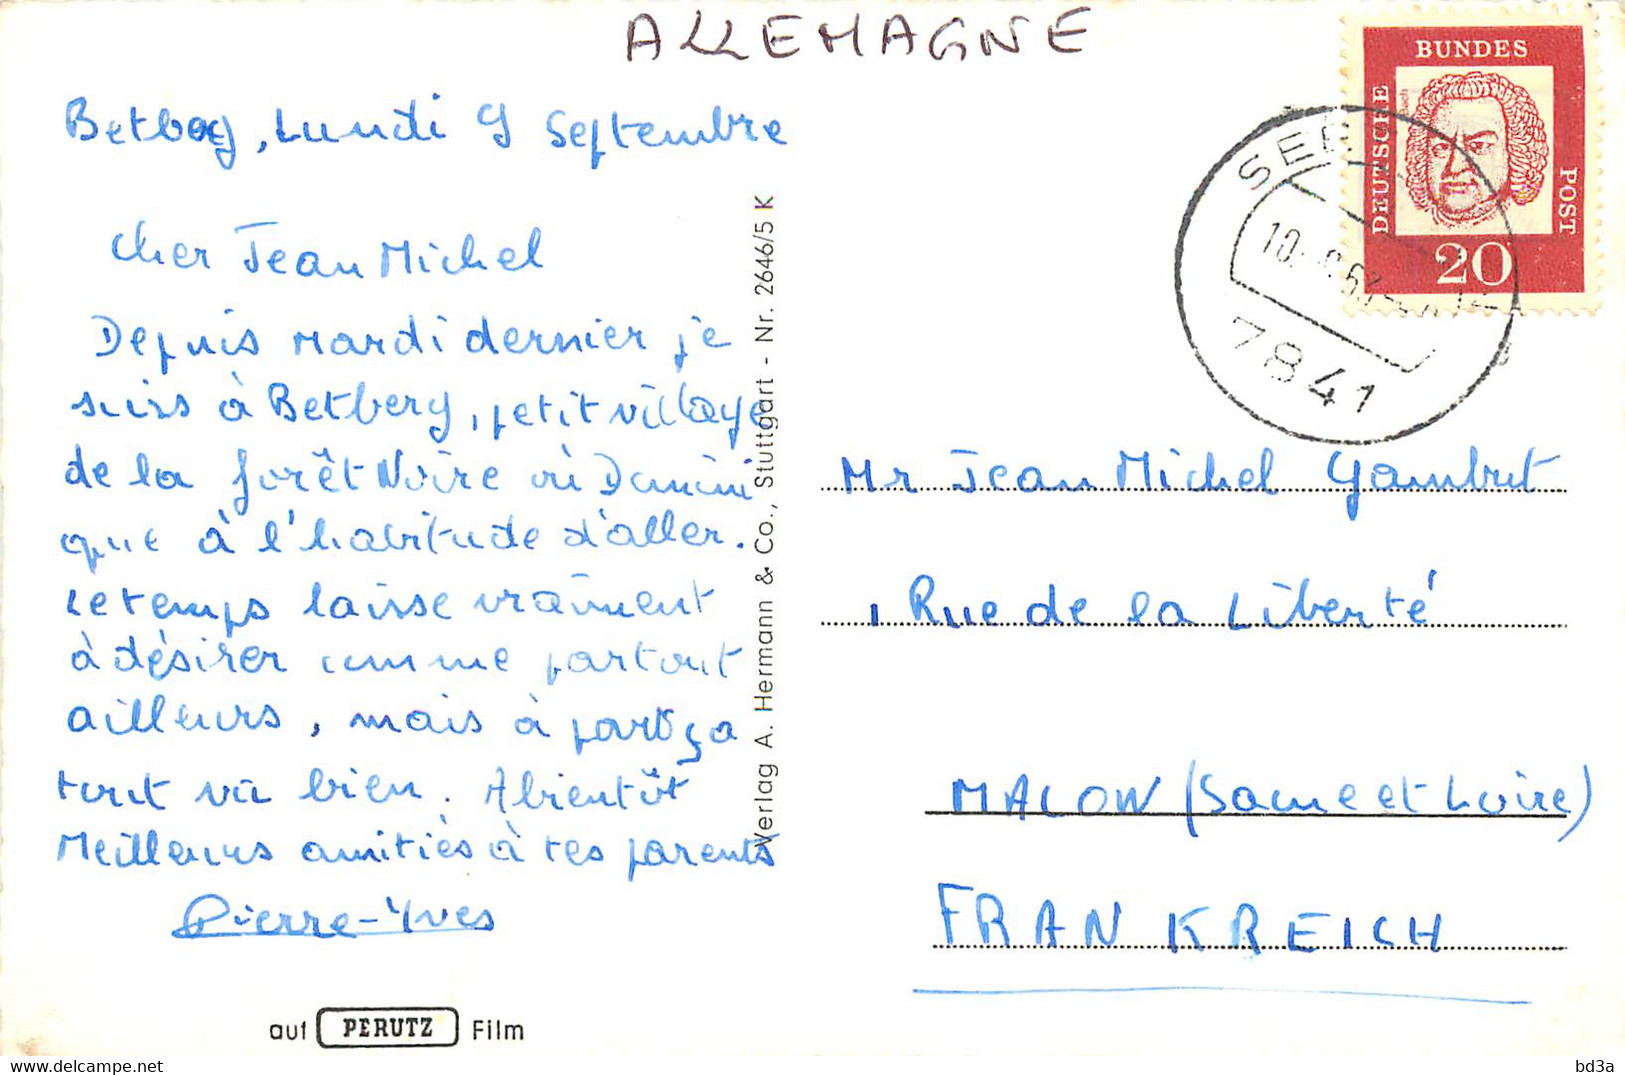 ALLEMAGNE
Betberg, Lundi 9 Septembre
Cher Jean Michel
Depuis mardi dernier je
suis à Betberg, petit village
de la forêt Noire où Domini
que à l'habitude d'aller.
Le temps laisse vraiment
à désirer comme partout
ailleurs, mais à part ça
tout va bien. A bientôt
Meilleurs amitiés à tes parents
Pierre-Yves
auf PERUTZ Film
Verlag A. Hermann & Co., Stuttgart - Nr. 2646/5 K
DEUTSCHE
BUNDES
POST
Bach
20
10.
7841
Mr Jean Michel Gambut
Rue de la Liberté
MACOW (Saone et Loire)
FRANKREICH
bd3a